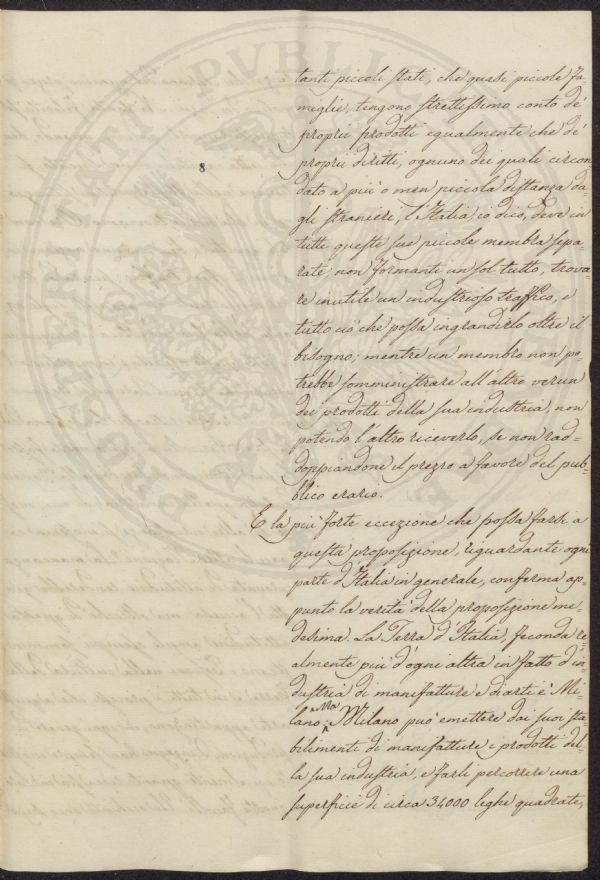 8
tanti piccoli stati, che quasi piccole fa-
miglie, tengono strettissimo conto de'
proprii prodotti egualmente che de'
proprii diritti, ognuno dei quali circon
dato a più o men piccola distanza da
gli stranieri, l'Italia, io dico, deve in
tutte queste sue piccole membra sepa-
rate non formanti un sol tutto, trova-
re inutile un industrioso traffico, e
tutto ciò che possa ingrandirlo oltre il
bisogno; mentre un membro non po-
trebbe somministrare all'altro verun
dei prodotti della sua industria, non
potendo l'altro riceverlo, se non rad=
doppiandone il prezzo a favore del pub-
blico erario.
E la più forte eccezione che possa farsi a
questa proposizione, riguardante ogni
parte d'Italia in generale, conferma ap-
punto la verità della proposizione me-
desima. La Terra d'Italia, feconda re-
almente più d'ogni altra in fatto d'in-
dustria di manifatture e d'arti è Mi-
lano; Ma Milano può emettere dai suoi sta-
bilimenti di manifatture i prodotti del-
la sua industria, e farli percorrere una
superficie di circa 34000 leghe quadrate,